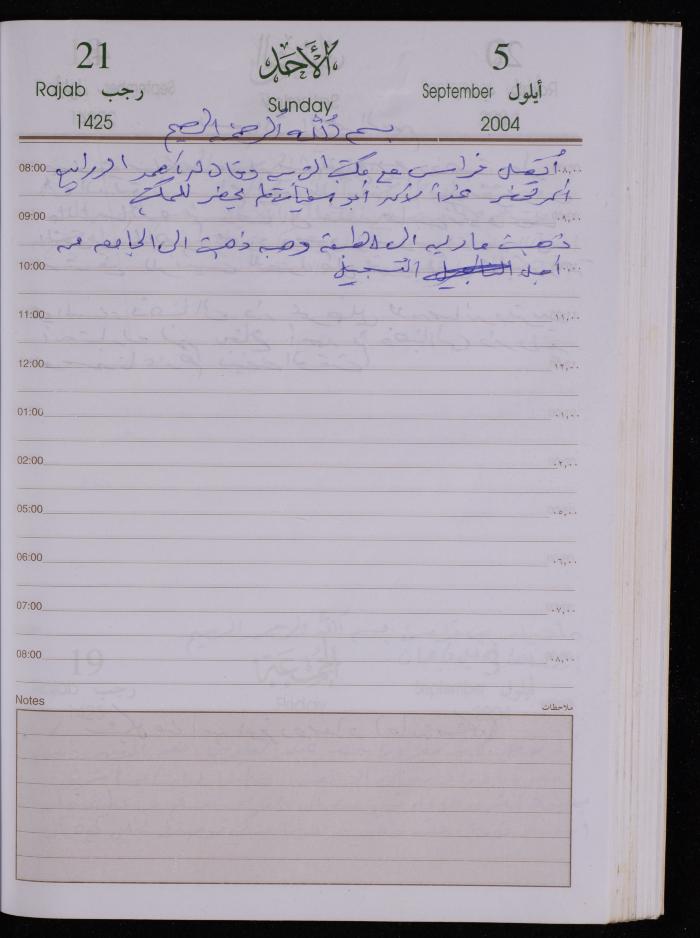 21 الأحد 5
Rajab رجب Sunday September أيلول
1425 2004
بسم الله الرحمن الرحيم
08:00 أتصل فراس مع مكتب وقال له أحمد ٠٨,٠٠
غداً لأكد أبو سفيان فلم يحضر للمكتب
09:00 ٠٩,٠٠
ذهبت مارليه الى الطبيبة وهبه ذهبت الى الجامعه من
10:00 أجل التسجيل ١٠,٠٠
11:00 ١١,٠٠
12:00 ١٢,٠٠
01:00 ٠١,٠٠
02:00 ٠٢,٠٠
05:00 ٠٥,٠٠
06:00 ٠٦,٠٠
07:00 ٠٧,٠٠
08:00 ٠٨,٠٠
Notes ملاحظات